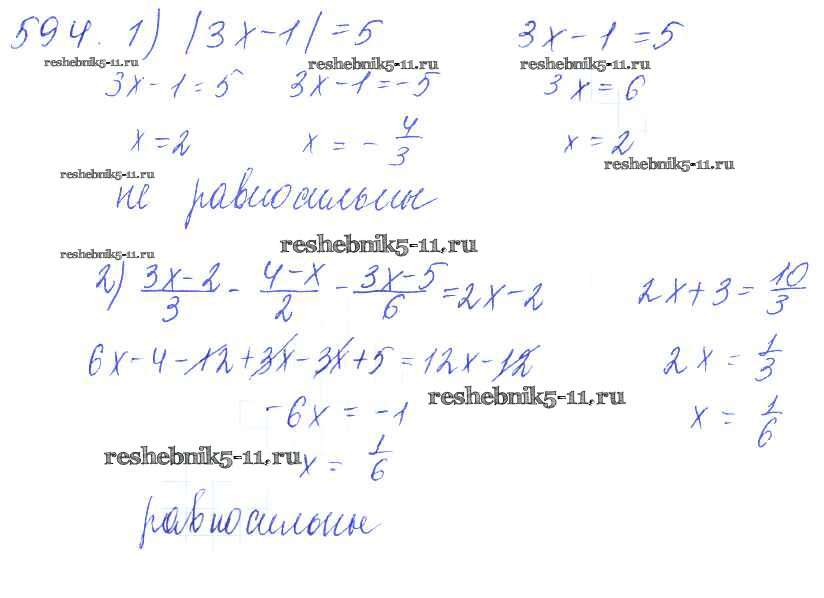 594. 1) |3x-1|=5 3x-1=5
reshebnik5-11.ru reshebnik5-11.ru reshebnik5-11.ru
3x-1=5 3x-1=-5 3x=6
x=2 x=-4/3 x=2
reshebnik5-11.ru
reshebnik5-11.ru
не равносильны
reshebnik5-11.ru
reshebnik5-11.ru
2) (3x-2)/3 - (4-x)/2 - (3x-5)/6 = 2x-2 2x+3=10/3
6x-4-12+3x-3x+5=12x-12 2x=1/3
reshebnik5-11.ru
-6x=-1 x=1/6
reshebnik5-11.ru
x=1/6
равносильны